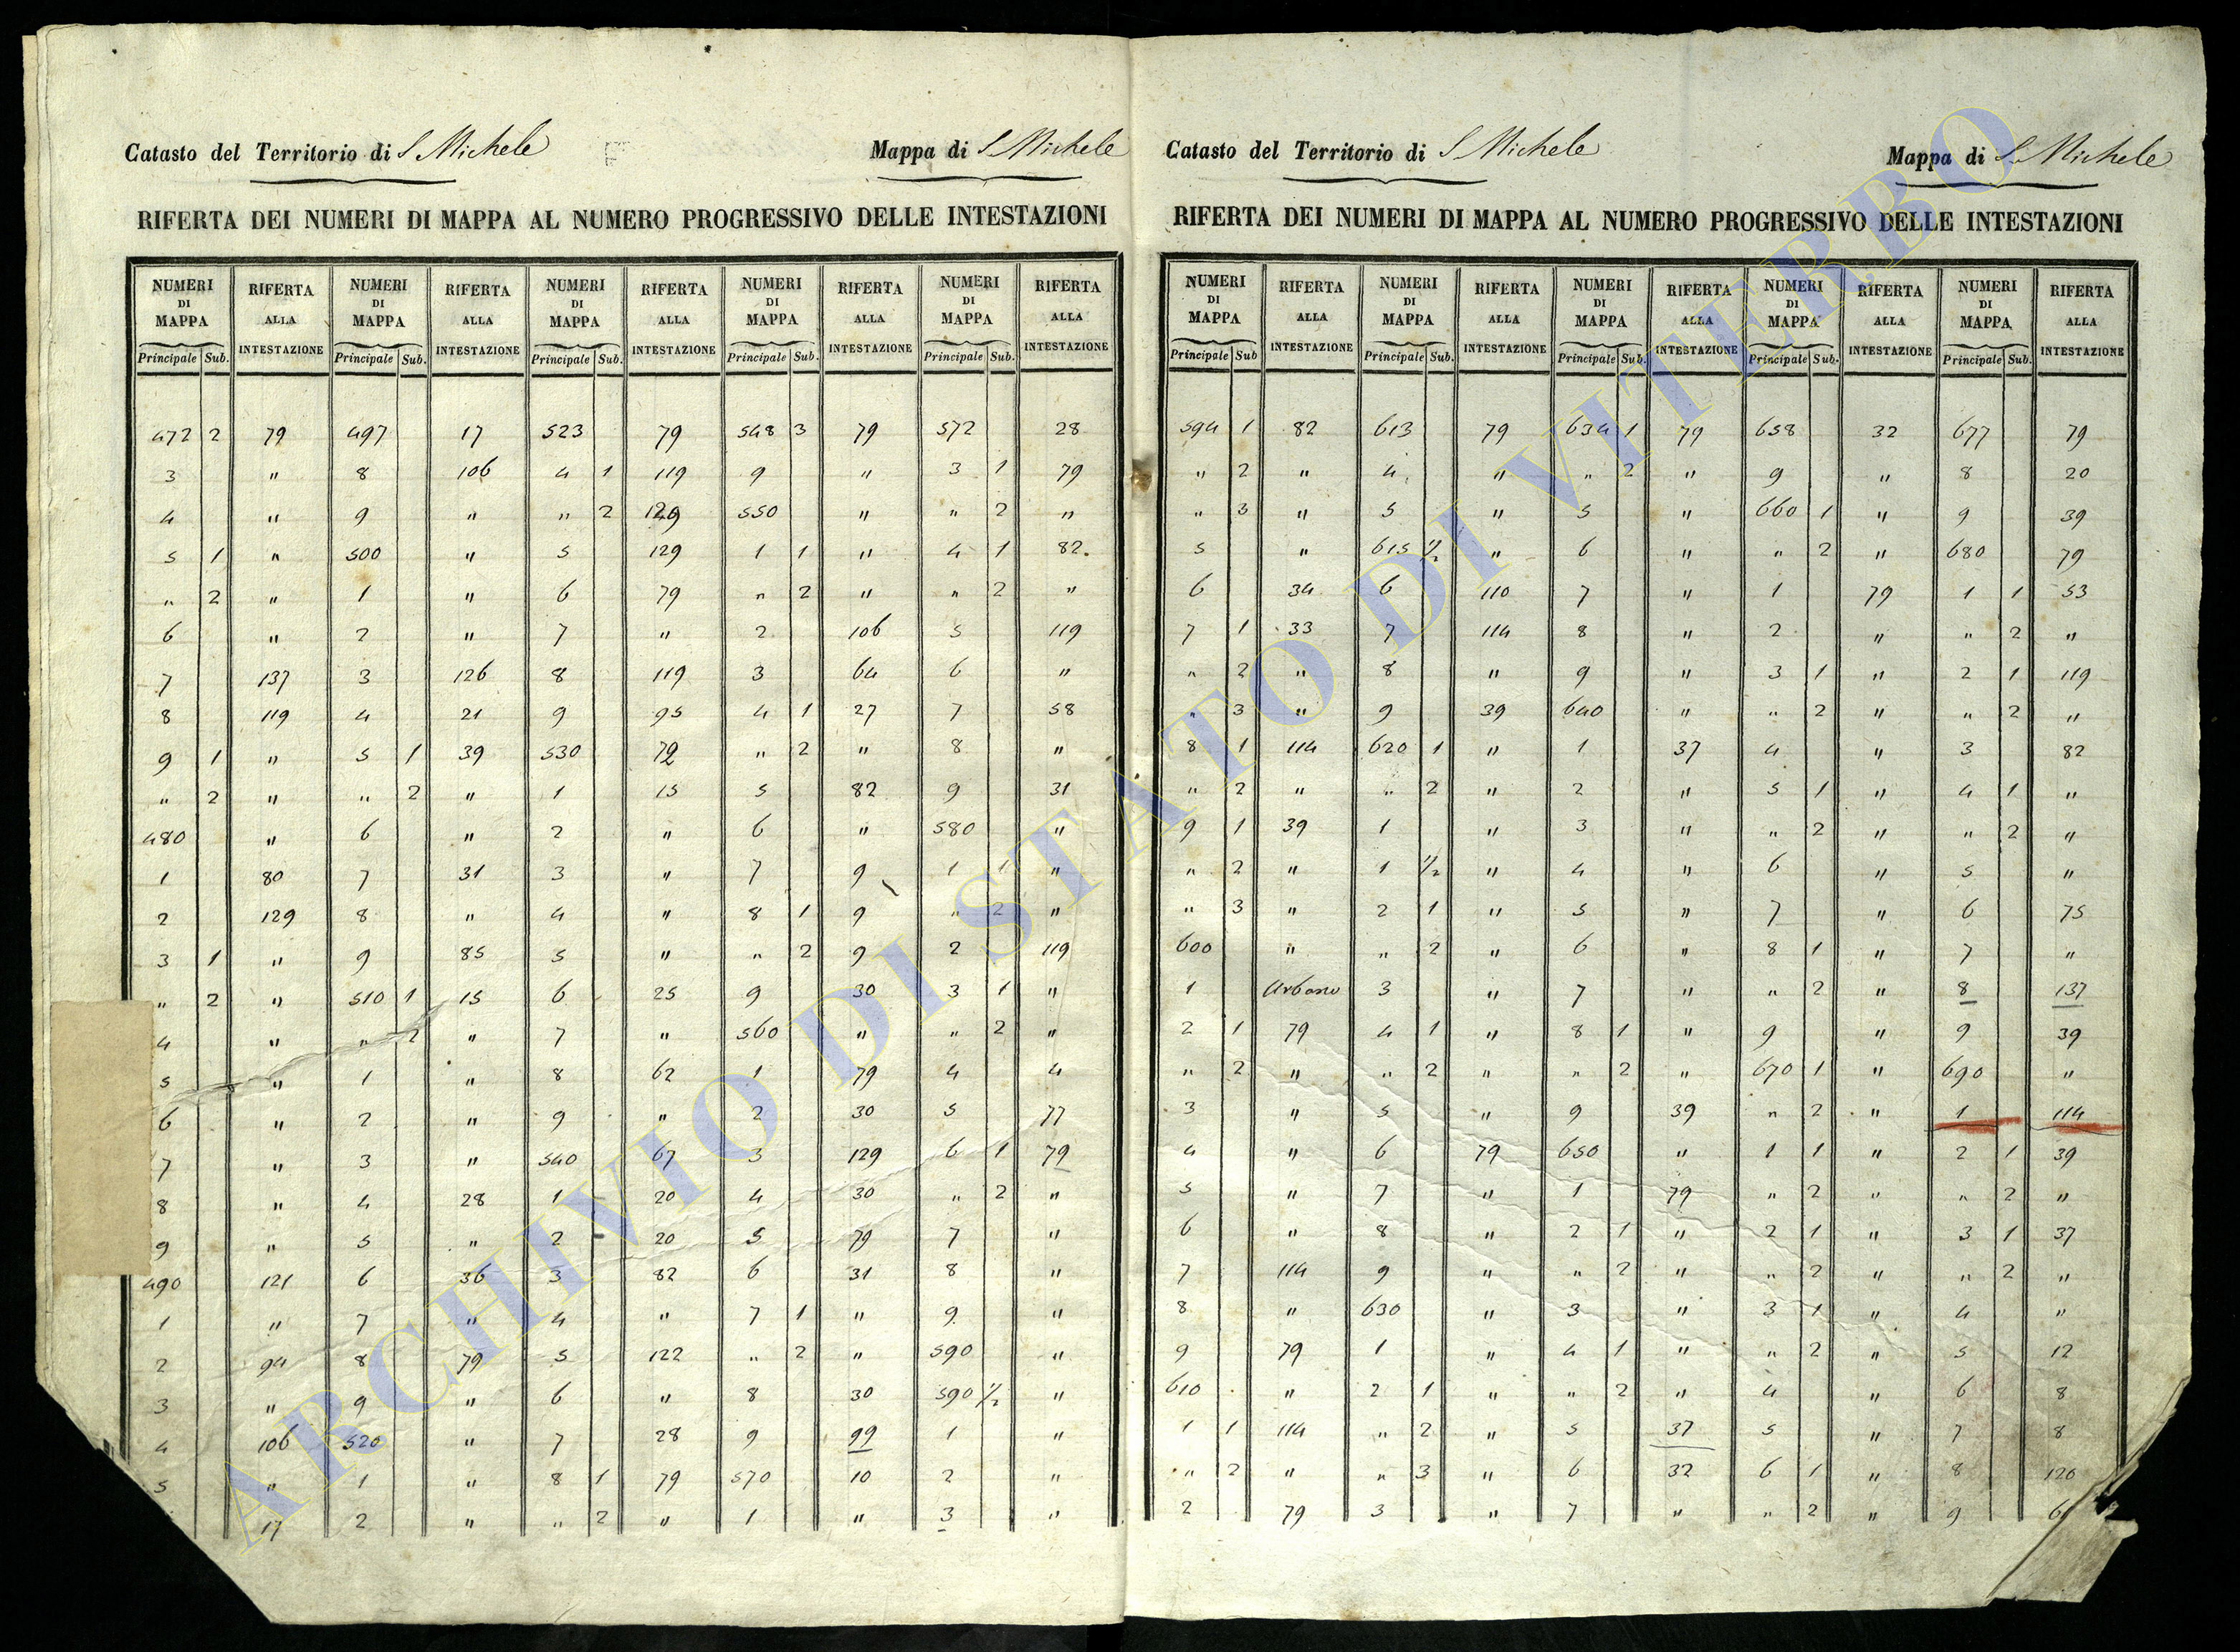 Catasto del Territorio di S Michele Mappa di S Michele
RIFERTA DEI NUMERI DI MAPPA AL NUMERO PROGRESSIVO DELLE INTESTAZIONI
NUMERI DI MAPPA RIFERTA ALLA INTESTAZIONE NUMERI DI MAPPA RIFERTA ALLA INTESTAZIONE NUMERI DI MAPPA RIFERTA ALLA INTESTAZIONE NUMERI DI MAPPA RIFERTA ALLA INTESTAZIONE NUMERI DI MAPPA RIFERTA ALLA INTESTAZIONE
Principale Sub. Principale Sub. Principale Sub. Principale Sub. Principale Sub.
472 2 79 497 17 523 79 548 3 79 572 28
3 " 8 106 4 1 119 9 " 3 1 79
4 " 9 " " 2 129 550 " " 2 "
5 1 " 500 " 5 129 1 1 " 4 1 82.
" 2 " 1 " 6 79 " 2 " " 2 "
6 " 2 " 7 " 2 106 5 119
7 137 3 126 8 119 3 64 6 "
8 119 4 21 9 95 4 1 27 7 58
9 1 " 5 1 39 530 72 " 2 " 8 "
" 2 " " 2 " 1 15 5 82 9 31
480 " 6 " 2 " 6 " 580 "
1 80 7 31 3 " 7 9 1 1 "
2 129 8 " 4 " 8 1 9 " 2 "
3 1 " 9 85 5 " " 2 9 2 119
" 2 " 510 1 15 6 25 9 30 3 1 "
4 " " 2 " 7 " 560 " " 2 "
5 " 1 " 8 62 1 79 4 4
6 " 2 " 9 " 2 30 5 77
7 " 3 " 540 67 3 129 6 1 79
8 " 4 28 1 20 4 30 " 2 "
9 " 5 " 2 20 5 79 7 "
490 121 6 36 3 82 6 31 8 "
1 " 7 " 4 " 7 1 " 9 "
2 94 8 79 5 122 " 2 " 590 "
3 " 9 " 6 " 8 30 590 1/2 "
4 106 520 " 7 28 9 99 1 "
5 " 1 " 8 1 79 570 10 2 "
17 2 " " 2 " 1 " 3 "
Catasto del Territorio di S Michele Mappa di S Michele
RIFERTA DEI NUMERI DI MAPPA AL NUMERO PROGRESSIVO DELLE INTESTAZIONI
NUMERI DI MAPPA RIFERTA ALLA INTESTAZIONE NUMERI DI MAPPA RIFERTA ALLA INTESTAZIONE NUMERI DI MAPPA RIFERTA ALLA INTESTAZIONE NUMERI DI MAPPA RIFERTA ALLA INTESTAZIONE NUMERI DI MAPPA RIFERTA ALLA INTESTAZIONE
Principale Sub Principale Sub. Principale Sub. Principale Sub. Principale Sub.
594 1 82 613 79 634 1 79 658 32 677 79
" 2 " 4 " " 2 " 9 " 8 20
" 3 " 5 " 5 " 660 1 " 9 39
5 " 615 1/2 " 6 " " 2 " 680 79
6 34 6 110 7 " 1 79 1 1 53
7 1 33 7 114 8 " 2 " " 2 "
" 2 " 8 " 9 " 3 1 " 2 1 119
" 3 " 9 39 640 " " 2 " " 2 "
8 1 114 620 1 " 1 37 4 " 3 82
" 2 " " 2 " 2 " 5 1 " 4 1 "
9 1 39 1 " 3 " " 2 " " 2 "
" 2 " 1 1/2 " 4 " 6 " 5 "
" 3 " 2 1 " 5 " 7 " 6 75
600 " " 2 " 6 " 8 1 " 7 "
1 Urbano 3 " 7 " " 2 " 8 137
2 1 79 4 1 " 8 1 " 9 " 9 39
" 2 " " 2 " " 2 " 670 1 " 690 "
3 " 5 " 9 39 " 2 " 1 114
4 " 6 79 650 " 1 1 " 2 1 39
5 " 7 " 1 79 " 2 " " 2 "
6 " 8 " 2 1 " 2 1 " 3 1 37
7 114 9 " " 2 " " 2 " " 2 "
8 " 630 " 3 " 3 1 " 4 "
9 79 1 " 4 1 " " 2 " 5 12
610 " 2 1 " " 2 " 4 " 6 8
1 1 114 " 2 " 5 37 5 " 7 8
" 2 " " 3 " 6 32 6 1 " 8 120
2 79 3 " 7 " " 2 " 9
ARCHIVIO DI STATO DI VITERBO